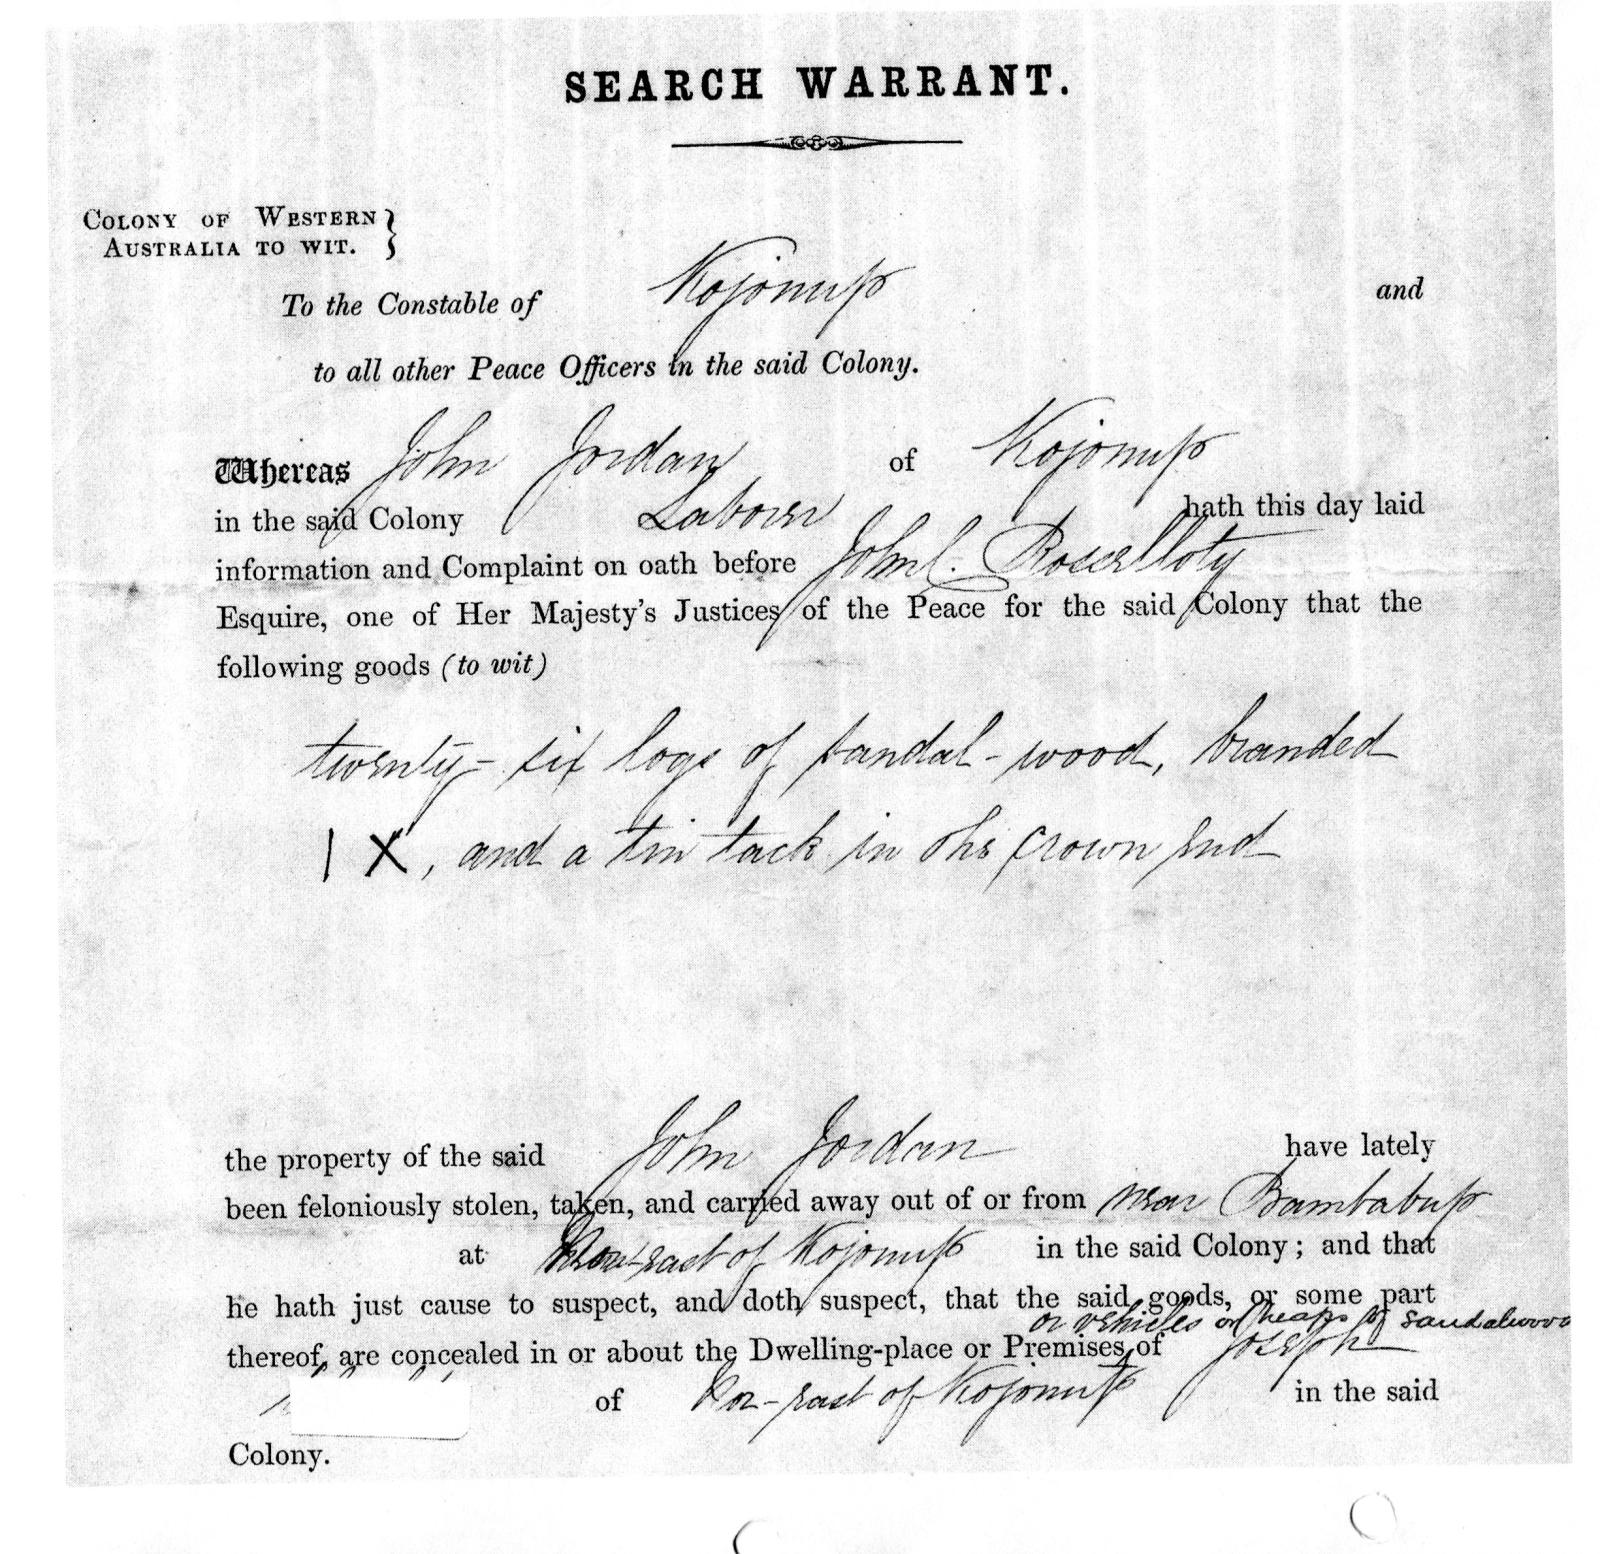 SEARCH WARRANT.
COLONY OF WESTERN
AUSTRALIA TO WIT. }
To the Constable of Kojonup and
to all other Peace Officers in the said Colony.
Whereas John Jordan of Kojonup
in the said Colony Laborer hath this day laid
information and Complaint on oath before John C. Rosselloty
Esquire, one of Her Majesty's Justices of the Peace for the said Colony that the
following goods (to wit)
twenty-six logs of sandal-wood, branded
| X, and a tin tack in the crown end
the property of the said John Jordan have lately
been feloniously stolen, taken, and carried away out of or from near Bambabup
at Nor-east of Kojonup in the said Colony; and that
he hath just cause to suspect, and doth suspect, that the said goods, or some part
or vehicles or heaps of sandalwood
thereof, are concealed in or about the Dwelling-place or Premises, of Joseph
of Nor-east of Kojonup in the said
Colony.